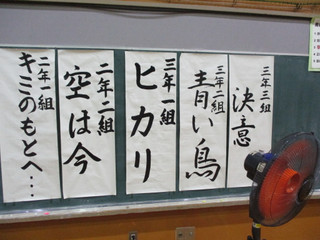 三年三組
決意
三年二組
青い鳥
三年一組
ヒカリ
二年二組
空は今
二年一組
キミのもとへ・・・